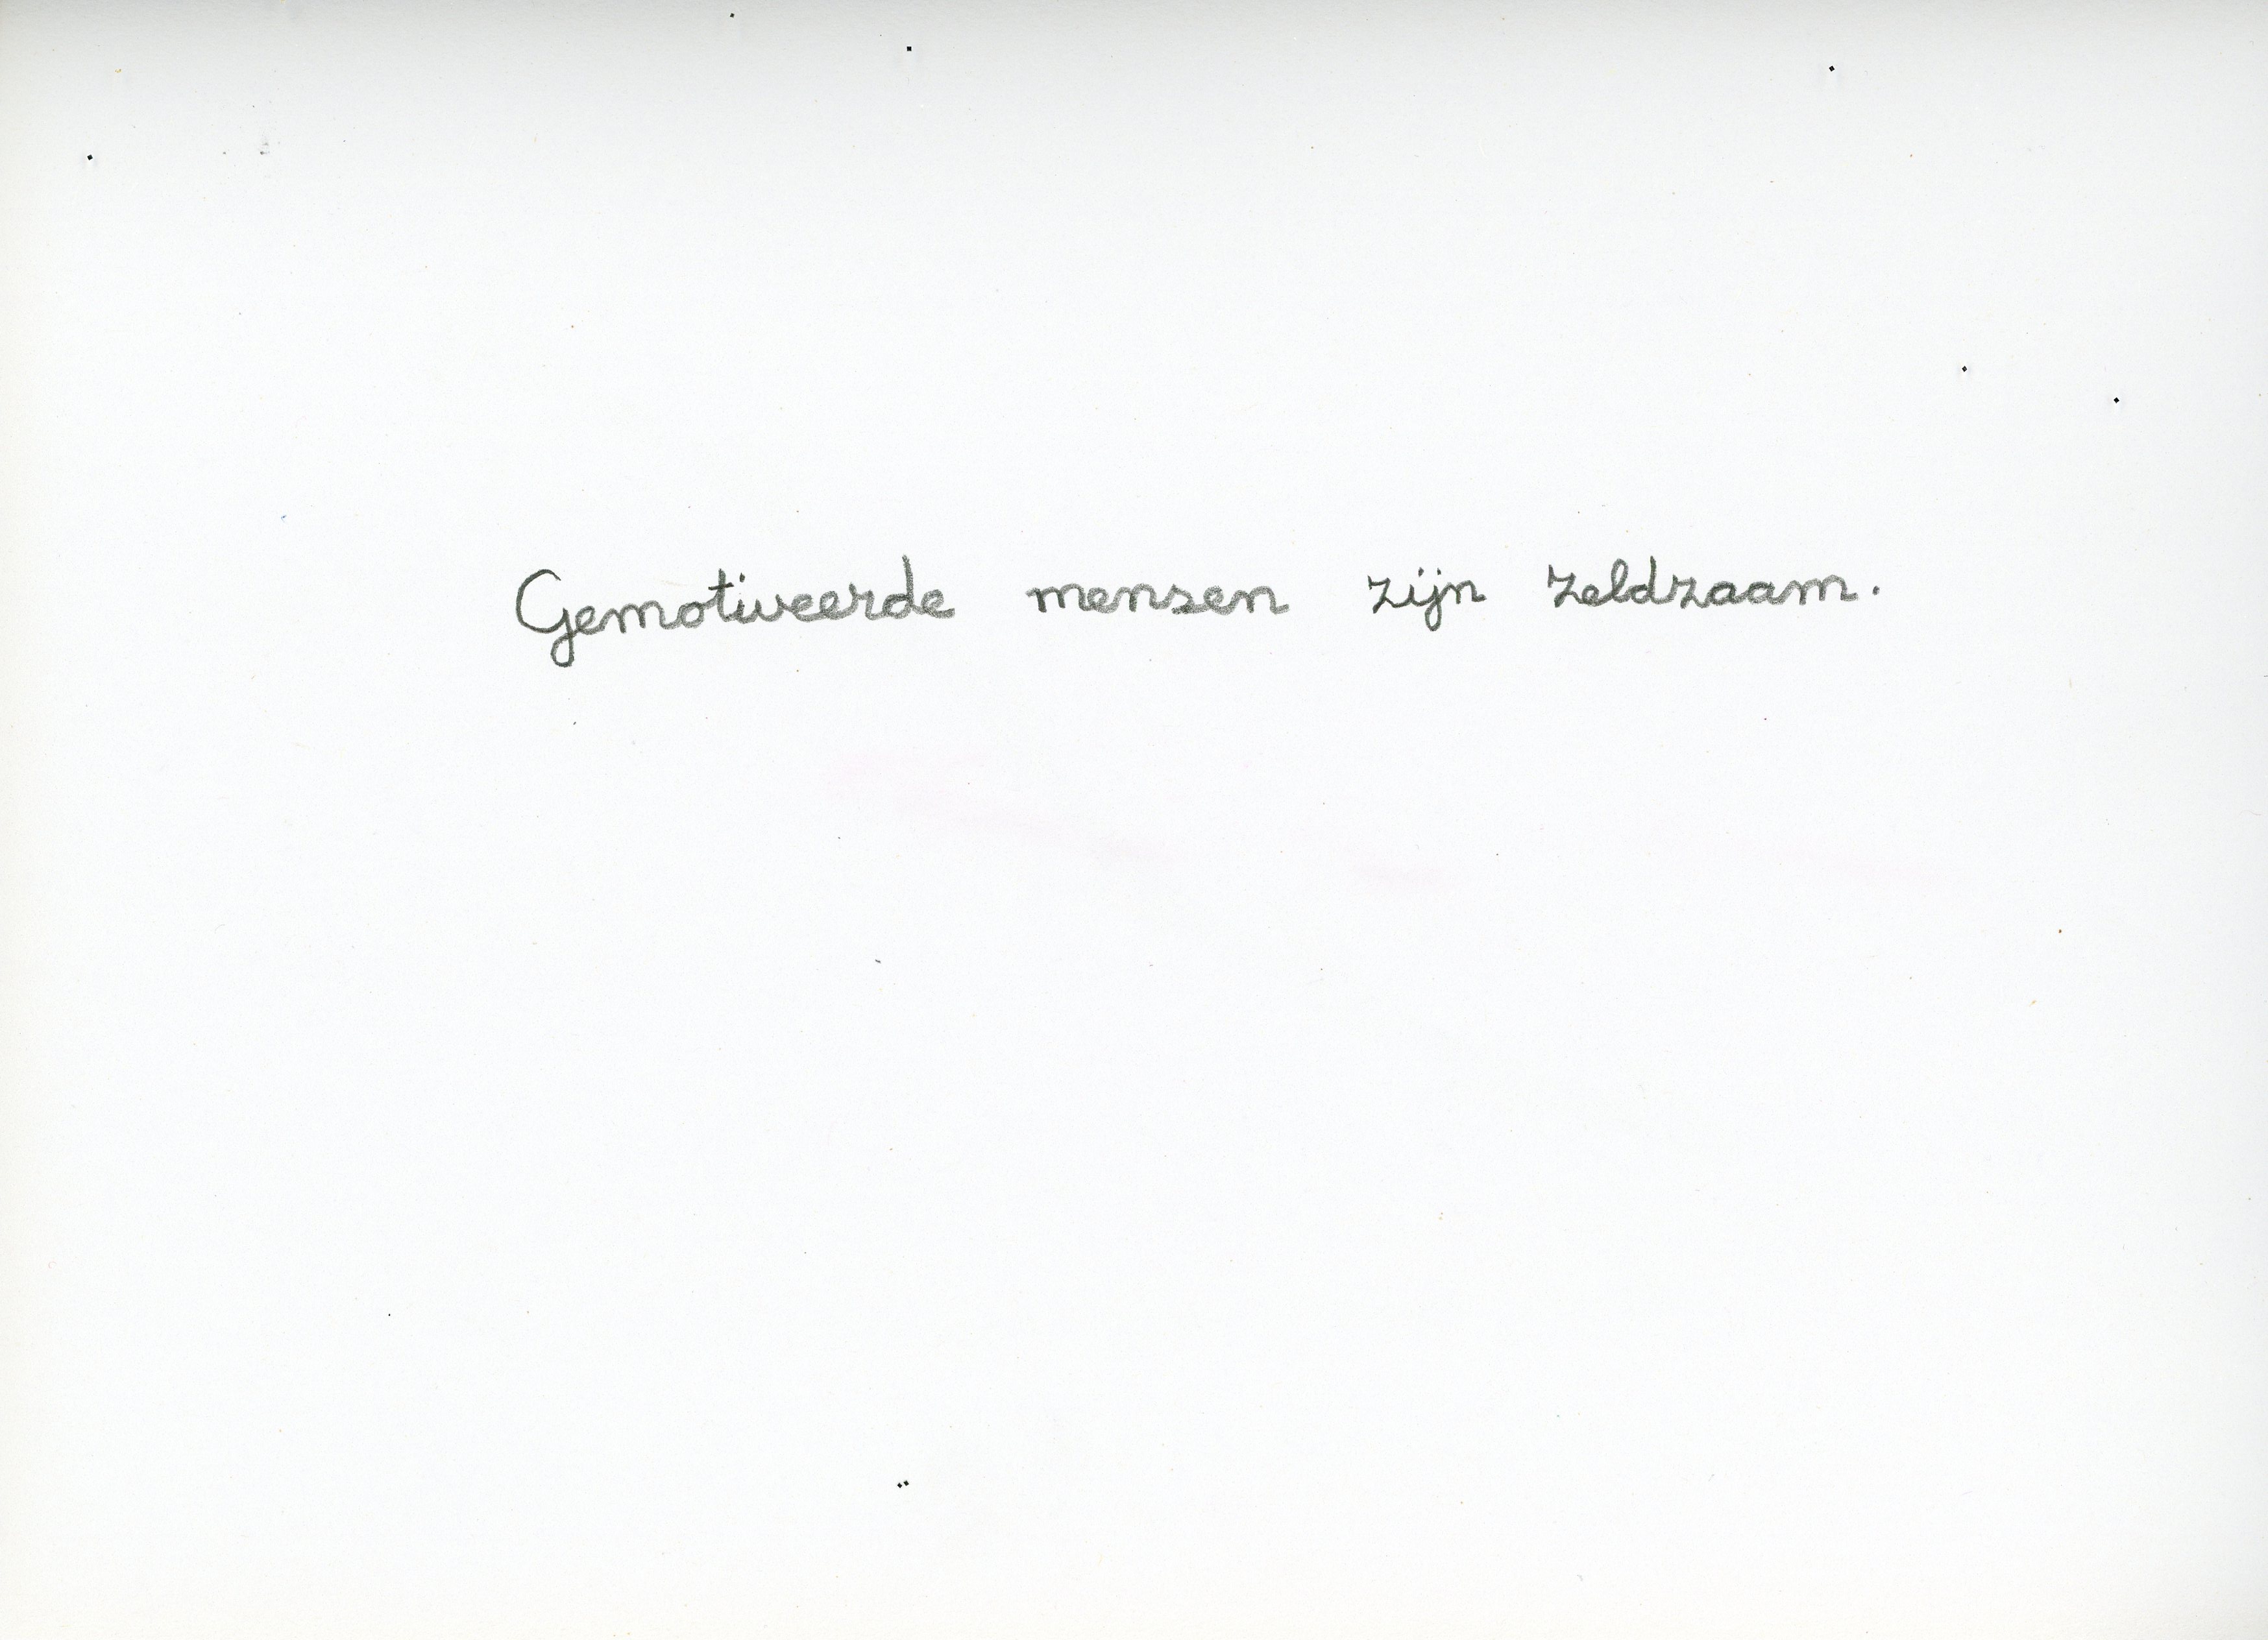 Gemotiveerde mensen zijn zeldzaam.